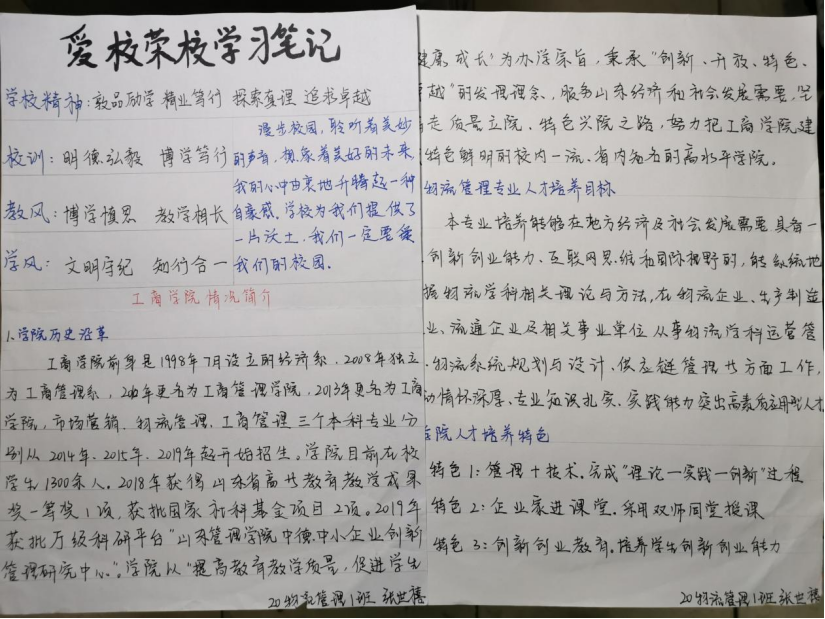 爱校荣校学习笔记
学校精神：敦品励学 精业笃行 探索真理 追求卓越
校训：明德弘毅 博学笃行
教风：博学慎思 教学相长
学风：文明守纪 知行合一
漫步校园，聆听着美妙
的声音，想象着美好的未来，
我的心中由衷地升腾起一种
自豪感。学校为我们提供了
一片沃土，我们一定要
我们的校园。
工商学院情况简介
1.学院历史沿革
工商学院前身是1998年7月设立的经济系，2008年独立
为工商管理系，年更名为工商管理学院，2013年更名为工商
学院，市场营销、物流管理、工商管理三个本科专业分
别从2014年、2015年、2019年起开始招生。学院目前在校
学生1300余人。2018年获得山东省高等教育教学成果
奖一等奖1项，获批国家社科基金项目2项。2019年
获批厅级科研平台“山东管理学院中德中小企业创新
管理研究中心”。学院以“提高教育教学质量，促进学生
20物流管理1班 张世
健康成长”为办学宗旨，秉承“创新、开放、特色、
越”的发展理念，服务山东经济和社会发展需要，坚
走质量立院、特色兴院之路，努力把工商学院建
特色鲜明的校内一流、省内知名的高水平学院。
物流管理专业人才培养目标
本专业培养能够在地方经济及社会发展需要具备一
创新创业能力、互联网思维和国际视野的，能系统地
握物流学科相关理论与方法，在物流企业、生产制造
业、流通企业及相关事业单位从事物流学科运营管
物流系统规划与设计、供应链管理等方面工作，
情怀深厚、专业知识扎实、实践能力突出高素质应用型人才
学院人才培养特色
特色1：管理+技术。完成“理论—实践—创新”过程
特色2：企业家进课堂。采用双师同堂授课
特色3：创新创业教育。培养学生创新创业能力
20物流管理1班 张世